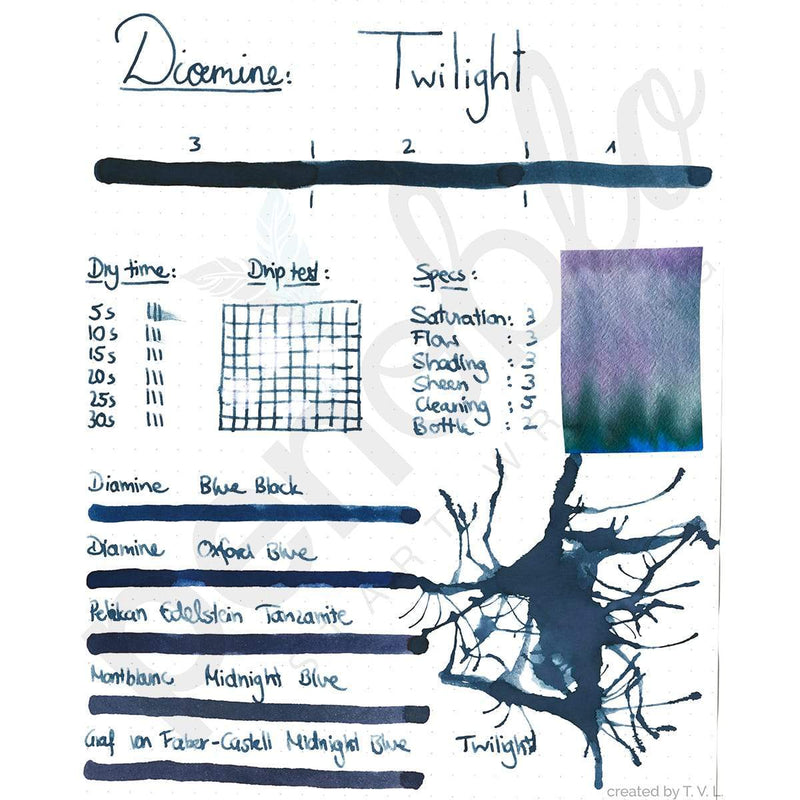 Diamine: Twilight
3 2 1
Dry time:
5s
10s
15s
20s
25s
30s
Drip test:
Specs:
Saturation: 3
Flow : 3
Shading : 3
Sheen : 3
Cleaning : 5
Bottle : 2
Diamine Blue Black
Diamine Oxford Blue
Pelikan Edelstein Tanzanite
Montblanc Midnight Blue
Graf von Faber-Castell Midnight Blue
Twilight
penoblo
created by T. V. L.